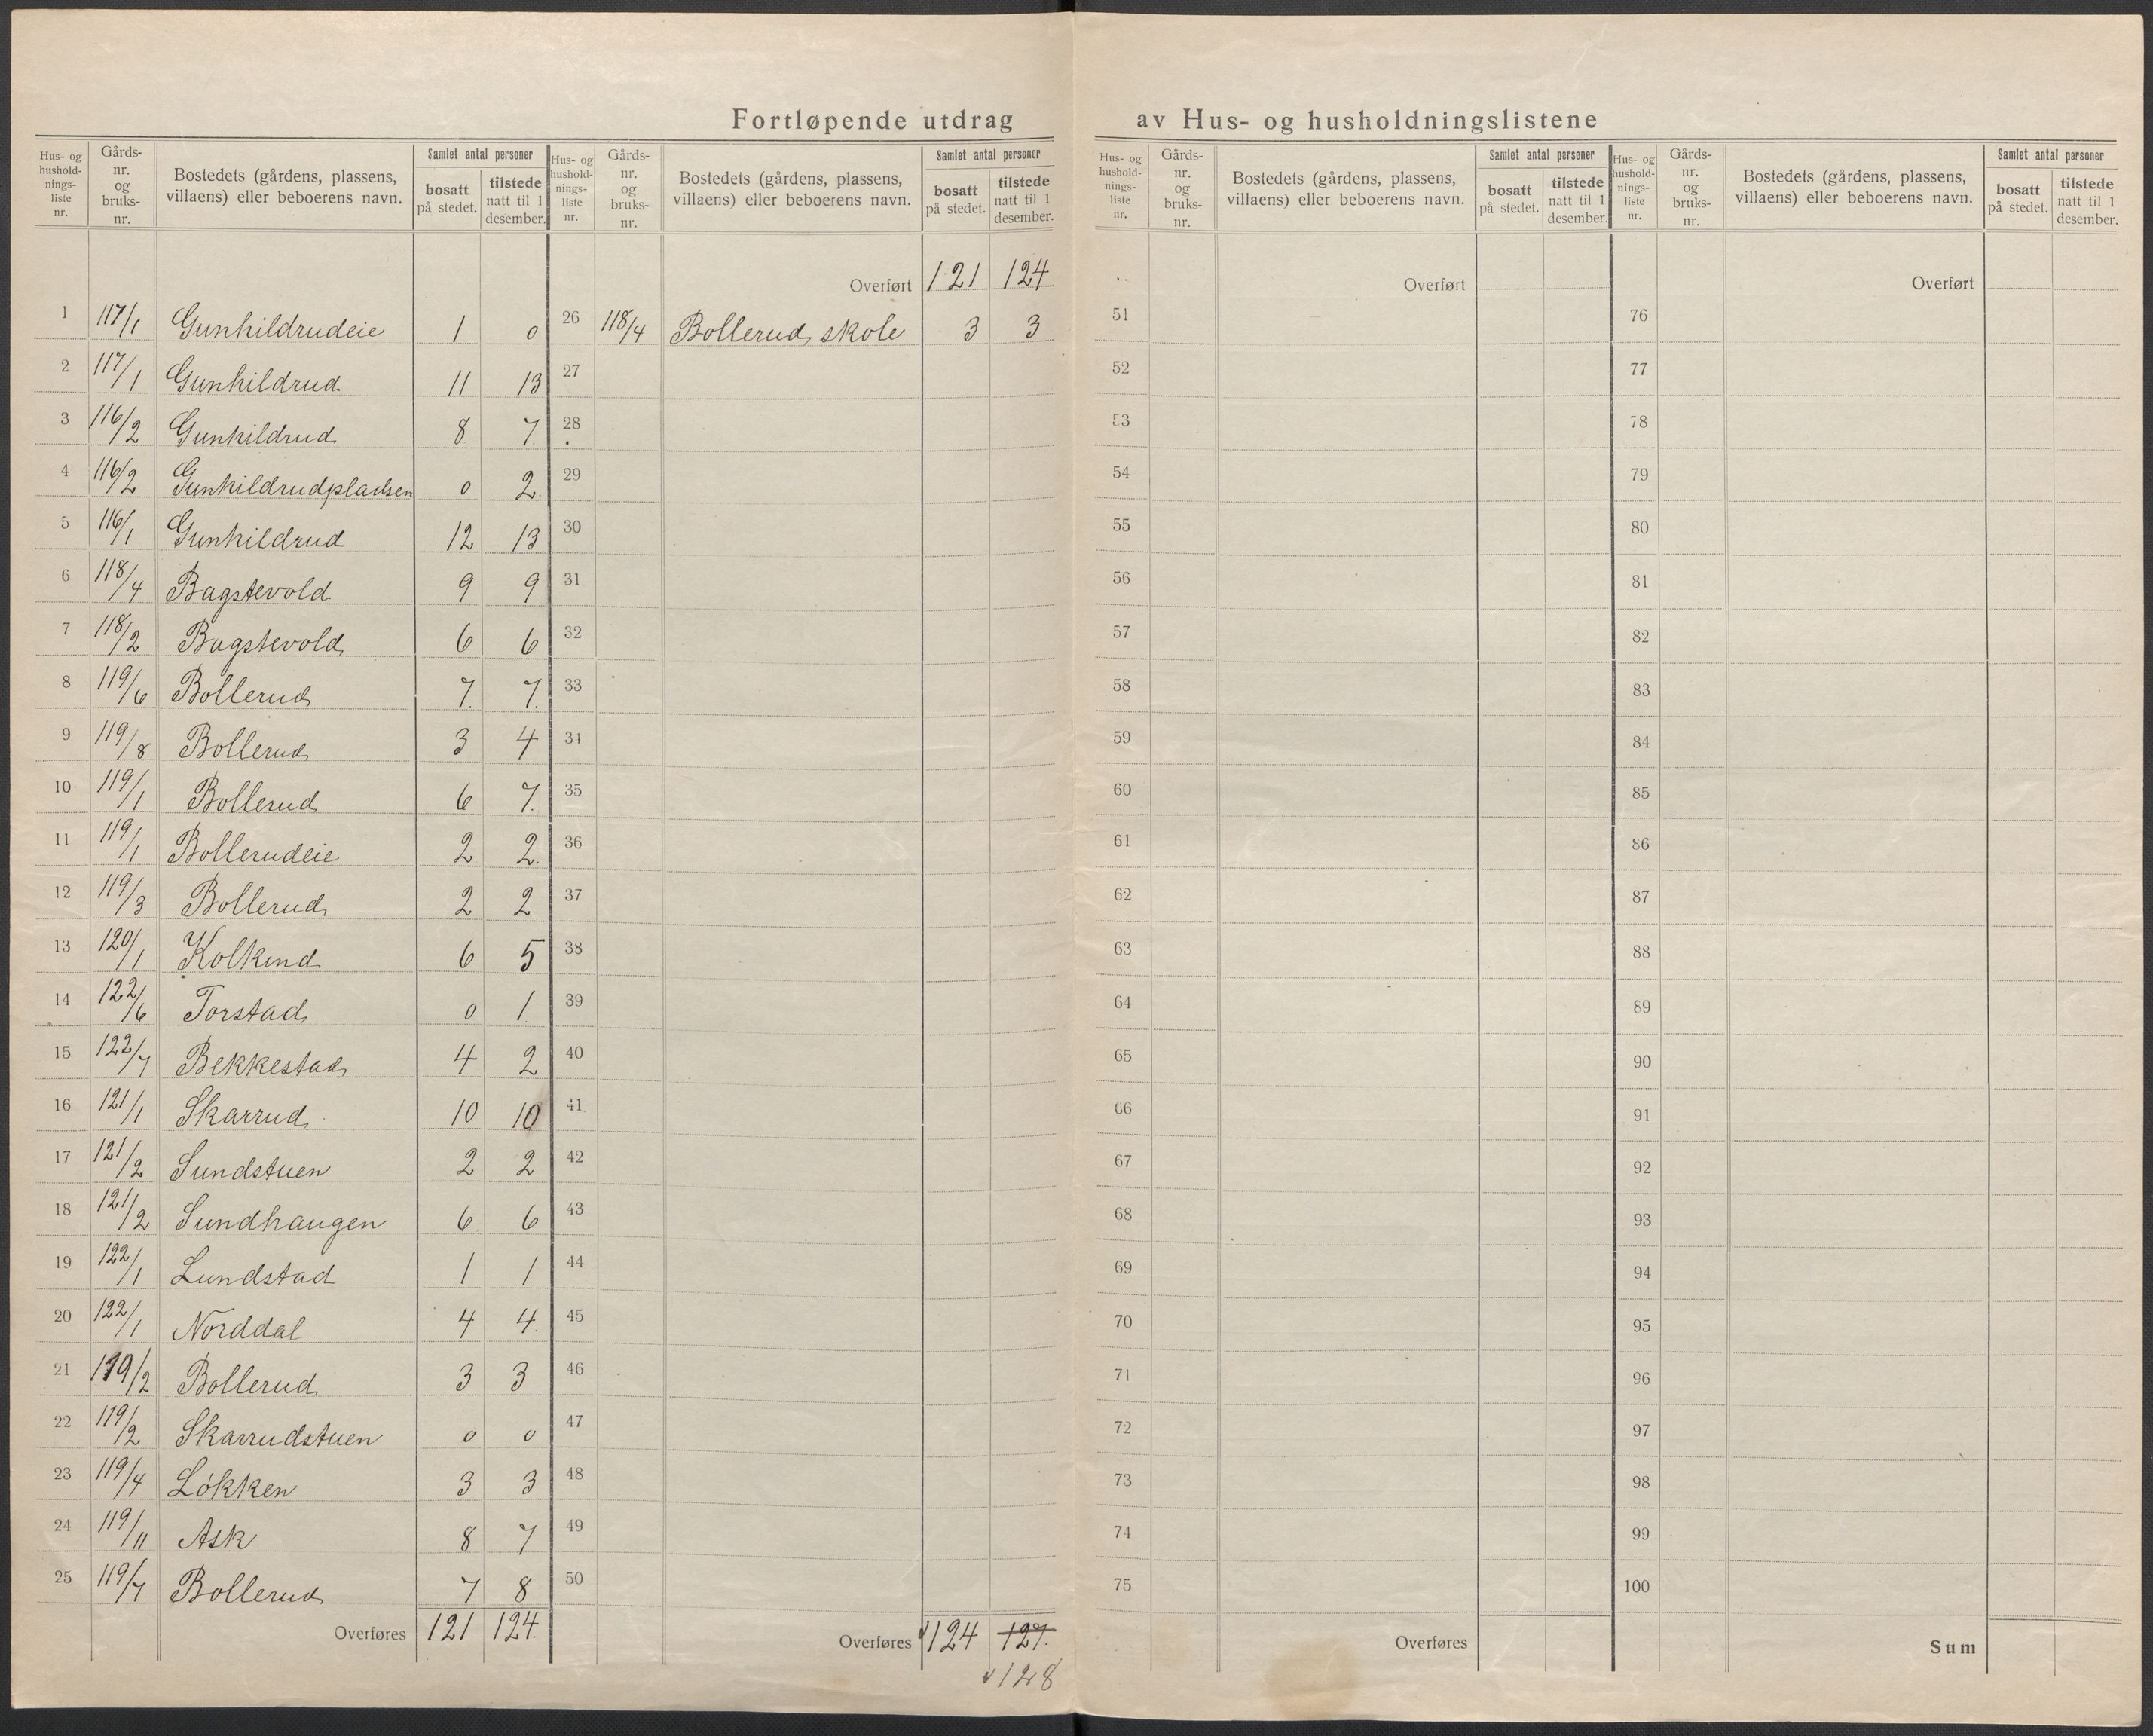 Fortløpende utdrag av Hus- og husholdningslistene
Hus- og hushold- nings- liste nr. | Gårds- nr. og bruks- nr. | Bostedets (gårdens, plassens, villaens) eller beboerens navn. | Samlet antal personer | bosatt på stedet. | tilstede natt til 1 desember.
1 117/1 Gunhildrudeie 1 0
2 117/1 Gunhildrud 11 13
3 116/2 Gunhildrud 8 7
4 116/2 Gunhildrudpladsen 0 2
5 116/1 Gunhildrud 12 13
6 118/4 Bagstevold 9 9
7 118/2 Bagstevold 6 6
8 119/6 Bollerud 7 7
9 119/8 Bollerud 3 4
10 119/1 Bollerud 6 7
11 119/1 Bollerudeie 2 2
12 119/3 Bollerud 2 2
13 120/1 Kolkind 6 5
14 122/6 Torstad 0 1
15 122/7 Bekkestad 4 2
16 121/1 Skarrud 10 10
17 121/2 Sundstuen 2 2
18 121/2 Sundhaugen 6 6
19 122/1 Lundstad 1 1
20 122/1 Norddal 4 4
21 119/2 Bollerud 3 3
22 119/2 Skarrudstuen 0 0
23 119/4 Løkken 3 3
24 119/11 Ask 8 7
25 119/7 Bollerud 7 8
Overføres 121 124
Hus- og hushold- nings- liste nr. | Gårds- nr. og bruks- nr. | Bostedets (gårdens, plassens, villaens) eller beboerens navn. | Samlet antal personer | bosatt på stedet. | tilstede natt til 1 desember.
Overført 121 124
26 118/4 Bollerud skole 3 3
27
28
29
30
31
32
33
34
35
36
37
38
39
40
41
42
43
44
45
46
47
48
49
50
Overføres 124 127.
128
Hus- og hushold- nings- liste nr. | Gårds- nr. og bruks- nr. | Bostedets (gårdens, plassens, villaens) eller beboerens navn. | Samlet antal personer | bosatt på stedet. | tilstede natt til 1 desember.
Overført
51
52
53
54
55
56
57
58
59
60
61
62
63
64
65
66
67
68
69
70
71
72
73
74
75
Overføres
Hus- og hushold- nings- liste nr. | Gårds- nr. og bruks- nr. | Bostedets (gårdens, plassens, villaens) eller beboerens navn. | Samlet antal personer | bosatt på stedet. | tilstede natt til 1 desember.
Overført
76
77
78
79
80
81
82
83
84
85
86
87
88
89
90
91
92
93
94
95
96
97
98
99
100
Sum